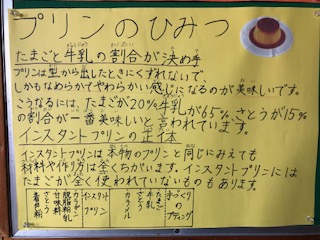 プリンのひみつ
たまごと牛乳の割合が決め手
プリンは型から出したときにくずれないで、
しかもなめらかでやわらかい感じになるのが美味しいです。
こうなるには、たまごが20%牛乳が65%さとうが15%
の割合が一番美味しいと言われています。
インスタントプリンの正体
インスタントプリンは本物のプリンと同じにみえても
材料や作り方は全くちがいます。インスタントプリンには
たまごが全く使われていないものもあります。
手づくりのプディング
たまご
牛乳
さとう
カラメル
インスタントプリン
カラギナン
脱脂粉乳
甘味料
さとう
着色料